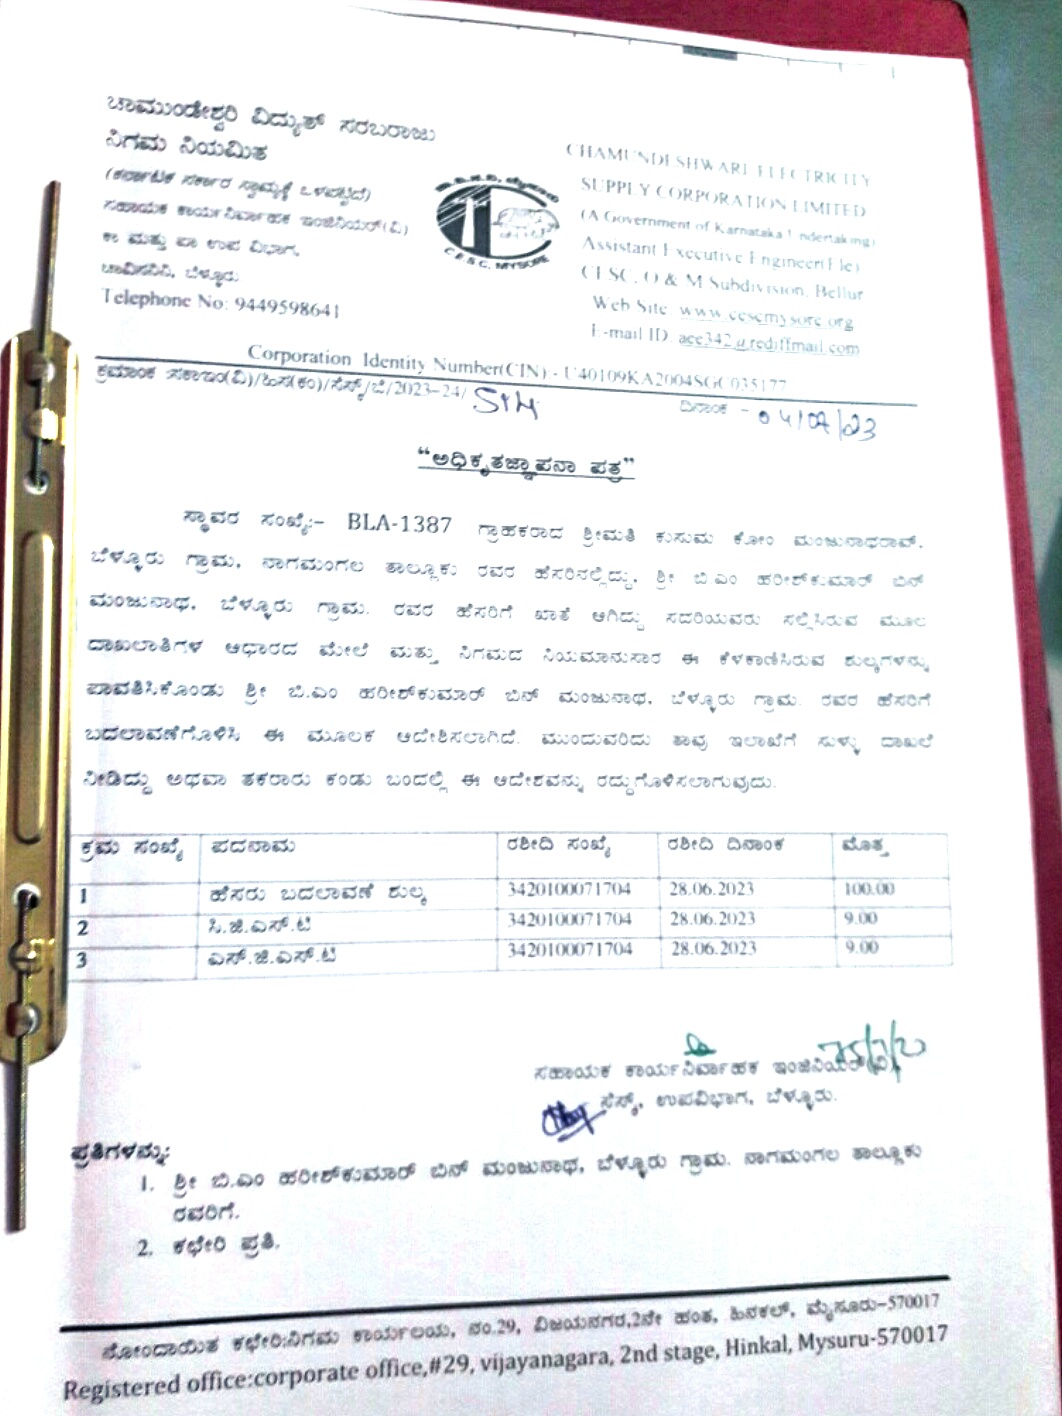 ಚಾಮುಂಡೇಶ್ವರಿ ವಿದ್ಯುತ್ ಸರಬರಾಜು
ನಿಗಮ ನಿಯಮಿತ
(ಕರ್ನಾಟಕ ಸರ್ಕಾರ ಸ್ವಾಮ್ಯಕ್ಕೆ ಒಳಪಟ್ಟಿದೆ)
ಸಹಾಯಕ ಕಾರ್ಯನಿರ್ವಾಹಕ ಇಂಜಿನಿಯರ್(ವಿ)
ಕಾ ಮತ್ತು ಪಾ ಉಪ ವಿಭಾಗ,
ಚಾವಿಸನಿನಿ, ಬೆಳ್ಳೂರು
Telephone No: 9449598641
C.E.S.C. MYSORE
CHAMUNDESHWARI ELECTRICITY
SUPPLY CORPORATION LIMITED
(A Government of Karnataka Undertaking)
Assistant Executive Engineer(Ele)
CESC, O & M Subdivision, Bellur
Web Site: www.cescmysore.org
E-mail ID: aee342@rediffmail.com
Corporation Identity Number(CIN) - U40109KA2004SGC035177
ಕ್ರಮಾಂಕ :ಸಕಾಇಂ(ವಿ)/ಹಿಸ(ಕಂ)/ಸೆಸ್ಕ್/ಬೆ/2023-24/ ದಿನಾಂಕ - 04/07/23
“ಅಧಿಕೃತಜ್ಞಾಪನಾ ಪತ್ರ”
ಸ್ಥಾವರ ಸಂಖ್ಯೆ:- BLA-1387 ಗ್ರಾಹಕರಾದ ಶ್ರೀಮತಿ ಕುಸುಮ ಕೋಂ ಮಂಜುನಾಥರಾವ್,
ಬೆಳ್ಳೂರು ಗ್ರಾಮ, ನಾಗಮಂಗಲ ತಾಲ್ಲೂಕು ರವರ ಹೆಸರಿನಲ್ಲಿದ್ದು, ಶ್ರೀ ಬಿ.ಎಂ ಹರೀಶ್‌ಕುಮಾರ್ ಬಿನ್
ಮಂಜುನಾಥ, ಬೆಳ್ಳೂರು ಗ್ರಾಮ. ರವರ ಹೆಸರಿಗೆ ಖಾತೆ ಆಗಿದ್ದು ಸದರಿಯವರು ಸಲ್ಲಿಸಿರುವ ಮೂಲ
ದಾಖಲಾತಿಗಳ ಆಧಾರದ ಮೇಲೆ ಮತ್ತು ನಿಗಮದ ನಿಯಮಾನುಸಾರ ಈ ಕೆಳಕಾಣಿಸಿರುವ ಶುಲ್ಕಗಳನ್ನು
ಪಾವತಿಸಿಕೊಂಡು ಶ್ರೀ ಬಿ.ಎಂ ಹರೀಶ್‌ಕುಮಾರ್ ಬಿನ್ ಮಂಜುನಾಥ, ಬೆಳ್ಳೂರು ಗ್ರಾಮ. ರವರ ಹೆಸರಿಗೆ
ಬದಲಾವಣೆಗೊಳಿಸಿ ಈ ಮೂಲಕ ಆದೇಶಿಸಲಾಗಿದೆ. ಮುಂದುವರಿದು ತಾವು ಇಲಾಖೆಗೆ ಸುಳ್ಳು ದಾಖಲೆ
ನೀಡಿದ್ದು ಅಥವಾ ತಕರಾರು ಕಂಡು ಬಂದಲ್ಲಿ ಈ ಆದೇಶವನ್ನು ರದ್ದುಗೊಳಿಸಲಾಗುವುದು.
ಕ್ರಮ ಸಂಖ್ಯೆ ಪದನಾಮ ರಶೀದಿ ಸಂಖ್ಯೆ ರಶೀದಿ ದಿನಾಂಕ ಮೊತ್ತ
1 ಹೆಸರು ಬದಲಾವಣೆ ಶುಲ್ಕ 3420100071704 28.06.2023 100.00
2 ಸಿ.ಜಿ.ಎಸ್.ಟಿ 3420100071704 28.06.2023 9.00
3 ಎಸ್.ಜಿ.ಎಸ್.ಟಿ 3420100071704 28.06.2023 9.00
ಸಹಾಯಕ ಕಾರ್ಯನಿರ್ವಾಹಕ ಇಂಜಿನಿಯರ್(ವಿ),
ಸೆಸ್ಕ್, ಉಪವಿಭಾಗ, ಬೆಳ್ಳೂರು.
ಪ್ರತಿಗಳನ್ನು:
1. ಶ್ರೀ ಬಿ.ಎಂ ಹರೀಶ್‌ಕುಮಾರ್ ಬಿನ್ ಮಂಜುನಾಥ, ಬೆಳ್ಳೂರು ಗ್ರಾಮ. ನಾಗಮಂಗಲ ತಾಲ್ಲೂಕು
ರವರಿಗೆ.
2. ಕಛೇರಿ ಪ್ರತಿ.
ನೋಂದಾಯಿತ ಕಛೇರಿ:ನಿಗಮ ಕಾರ್ಯಲಯ, ನಂ.29, ವಿಜಯನಗರ,2ನೇ ಹಂತ, ಹಿನಕಲ್, ಮೈಸೂರು-570017
Registered office:corporate office,#29, vijayanagara, 2nd stage, Hinkal, Mysuru-570017